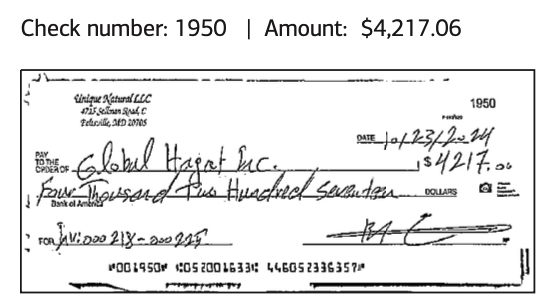 Check number: 1950 | Amount: $4,217.06
Unique Natural LLC
4715 Sellman Road, C
Beltsville, MD 20705
1950
DATE 10/23/2024
PAY TO THE ORDER OF Global Hagat Inc. $4217.06
Four Thousand Two Hundred Seventeen DOLLARS
Bank of America
FOR INV: 000218-000225
⑈001950⑈ ⑆052001633⑆ 446052336357⑈